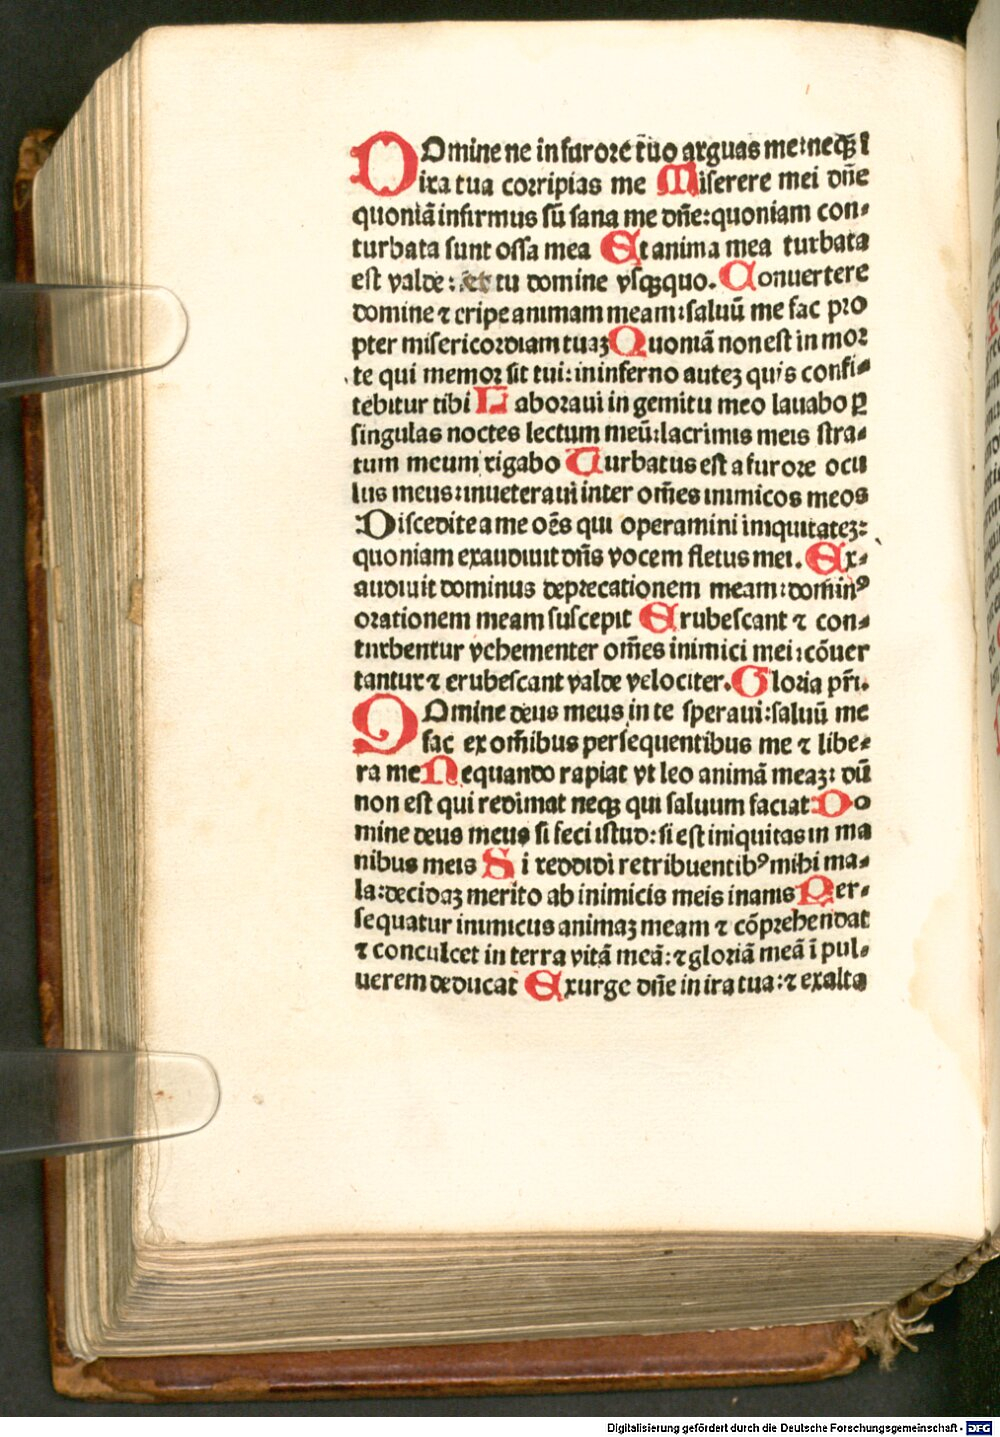 DOmine ne in furore tuo arguas me:neqꝫ ī
ira tua corripias me Miserere mei dñe
quoniā infirmus sū sana me dñe:quoniam con⸗
turbata sunt ossa mea Et anima mea turbata
est valde : et tu domine vsqꝫquo. Conuertere
domine ⁊ eripe animam meam:saluū me fac pro
pter misericordiam tuaꝫ Quoniā non est in mor
te qui memor sit tui: in inferno auteꝫ quis confi⸗
tebitur tibi Laboraui in gemitu meo lauabo ꝑ
singulas noctes lectum meū:lacrimis meis stra⸗
tum meum rigabo Turbatus est a furore ocu
lus meus:inueteraui inter om̄es inimicos meos
:Discedite a me oēs qui operamini iniquitateꝫ:
quoniam exaudiuit dñs vocem fletus mei. Ex⸗
audiuit dominus deprecationem meam:domin⁹
orationem meam suscepit Erubescant ⁊ con⸗
turbentur vehementer om̄es inimici mei:cōuer
tantur ⁊ erubescant valde velociter. Gloria pr̄i.
DOmine deus meus in te speraui:saluū me
fac ex om̄ibus persequentibus me ⁊ libe⸗
ra me Nequando rapiat vt leo animā meaꝫ: dū
non est qui redimat neqꝫ qui saluum faciat:Do
mine deus meus si feci istud: si est iniquitas in ma
nibus meis Si reddidi retribuentib⁹ mihi ma⸗
la:decidaꝫ merito ab inimicis meis inanis Per⸗
sequatur inimicus animaꝫ meam ⁊ cōprehendat
⁊ conculcet in terra vitā meā: ⁊ gloriā meā ī pul⸗
uerem deducat Exurge dñe in ira tua: ⁊ exalta
Digitalisierung gefördert durch die Deutsche Forschungsgemeinschaft - DFG